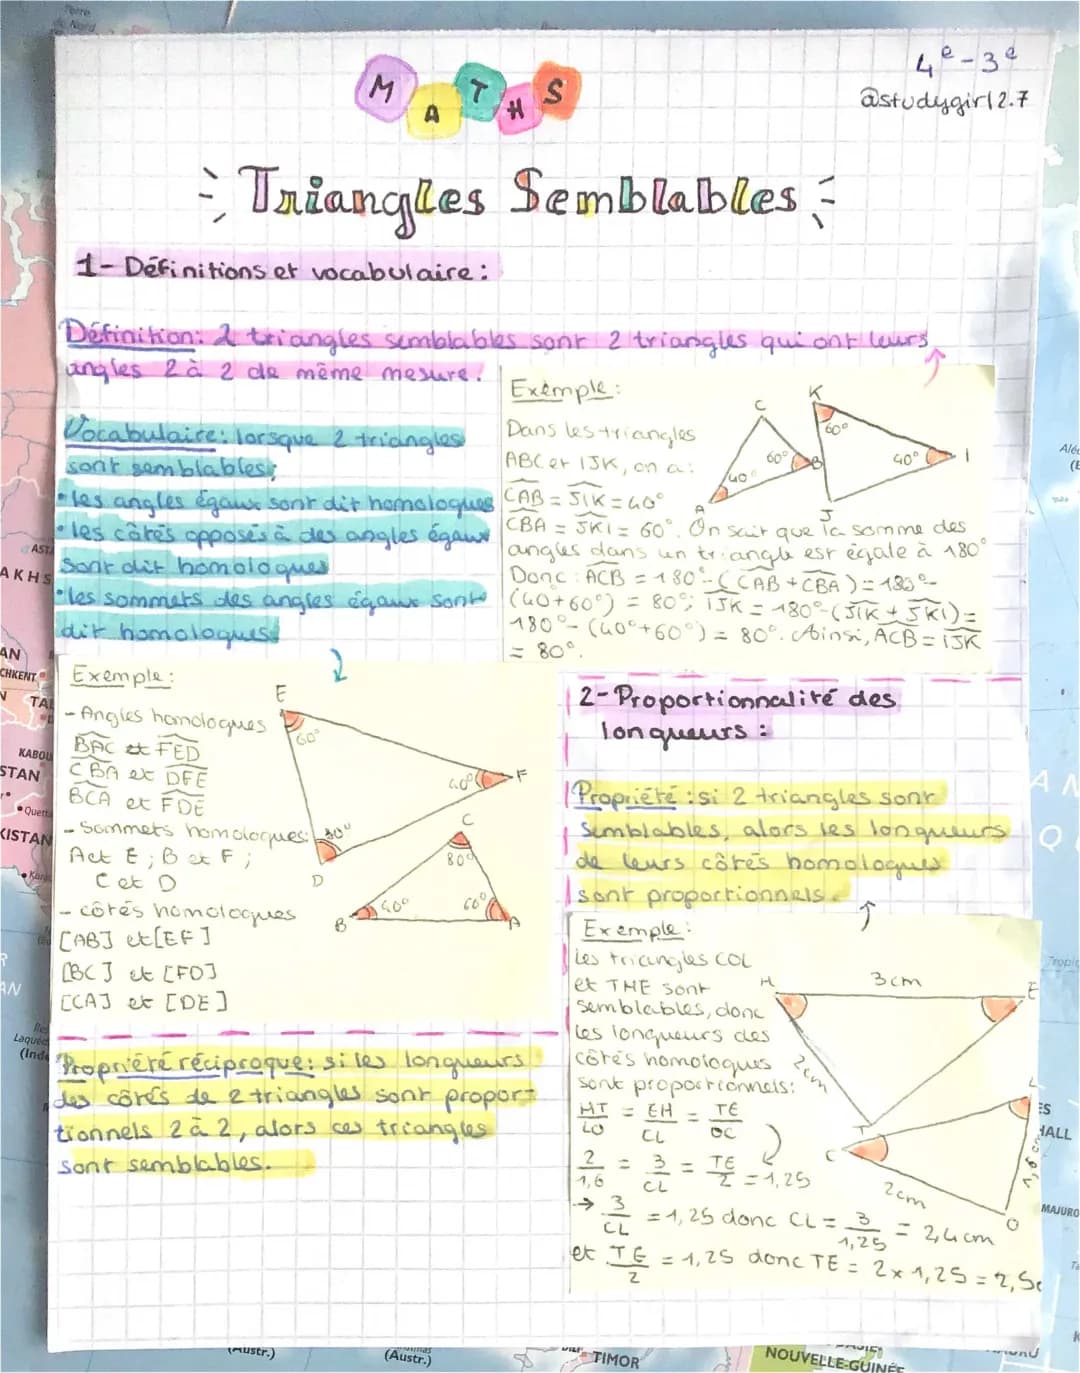 4e-3e
@studygirl2.7
MATHS
Triangles Semblables
1- Définitions et vocabulaire :
Définition: 2 triangles semblables sont 2 triangles qui ont leurs
angles 2 à 2 de même mesure.
Vocabulaire: lorsque 2 triangles
sont semblables;
• les angles égaux sont dit homologues
• les côtés opposés à des angles égaux
sont dit homologues
• les sommets des angles égaux sont
dit homologues
Exemple :
Dans les triangles
ABC et IJK, on a :
CAB = JIK = 40°
CBA = JKI = 60°. On sait que la somme des
angles dans un triangle est égale à 180°
Donc : ACB = 180°-(CAB + CBA) = 180°-
(40+60°) = 80°; IJK = 180°-(JIK + JKI) =
180°- (40°+60°) = 80°. Ainsi, ACB = IJK
= 80°.
C
K
60°
60°
B
40°
I
40°
A
J
Exemple :
- Angles homologues
BAC et FED
CBA et DFE
BCA et FDE
- Sommets homologues:
A et E ; B et F ;
C et D
- côtés homologues
[AB] et [EF]
[BC] et [FD]
[CA] et [DE]
E
60°
40°
F
80°
D
C
80°
B
40°
60°
A
2- Proportionnalité des
longueurs :
Propriété : si 2 triangles sont
semblables, alors les longueurs
de leurs côtés homologues
sont proportionnels.
Exemple :
Les triangles COL
et THE sont
semblables, donc
les longueurs des
côtés homologues
sont proportionnels:
HT/LO = EH/CL = TE/OC
2/1,6 = 3/CL = TE/2 = 1,25
→ 3/CL = 1,25 donc CL = 3/1,25 = 2,4 cm
et TE/2 = 1,25 donc TE = 2 x 1,25 = 2,5c
H
3cm
E
2cm
T
L
C
2cm
1,6cm
O
Propriété réciproque: si les longueurs
des côtés de 2 triangles sont propor-
tionnels 2 à 2, alors ces triangles
sont semblables.
Terre
Nord
AN
CHKENT
KABOU
STAN
Quetta
KISTAN
AKHS
AST
AN
(Austr.)
(Austr.)
TIMOR
NOUVELLE-GUINÉE
MAJURO
ES
HALL